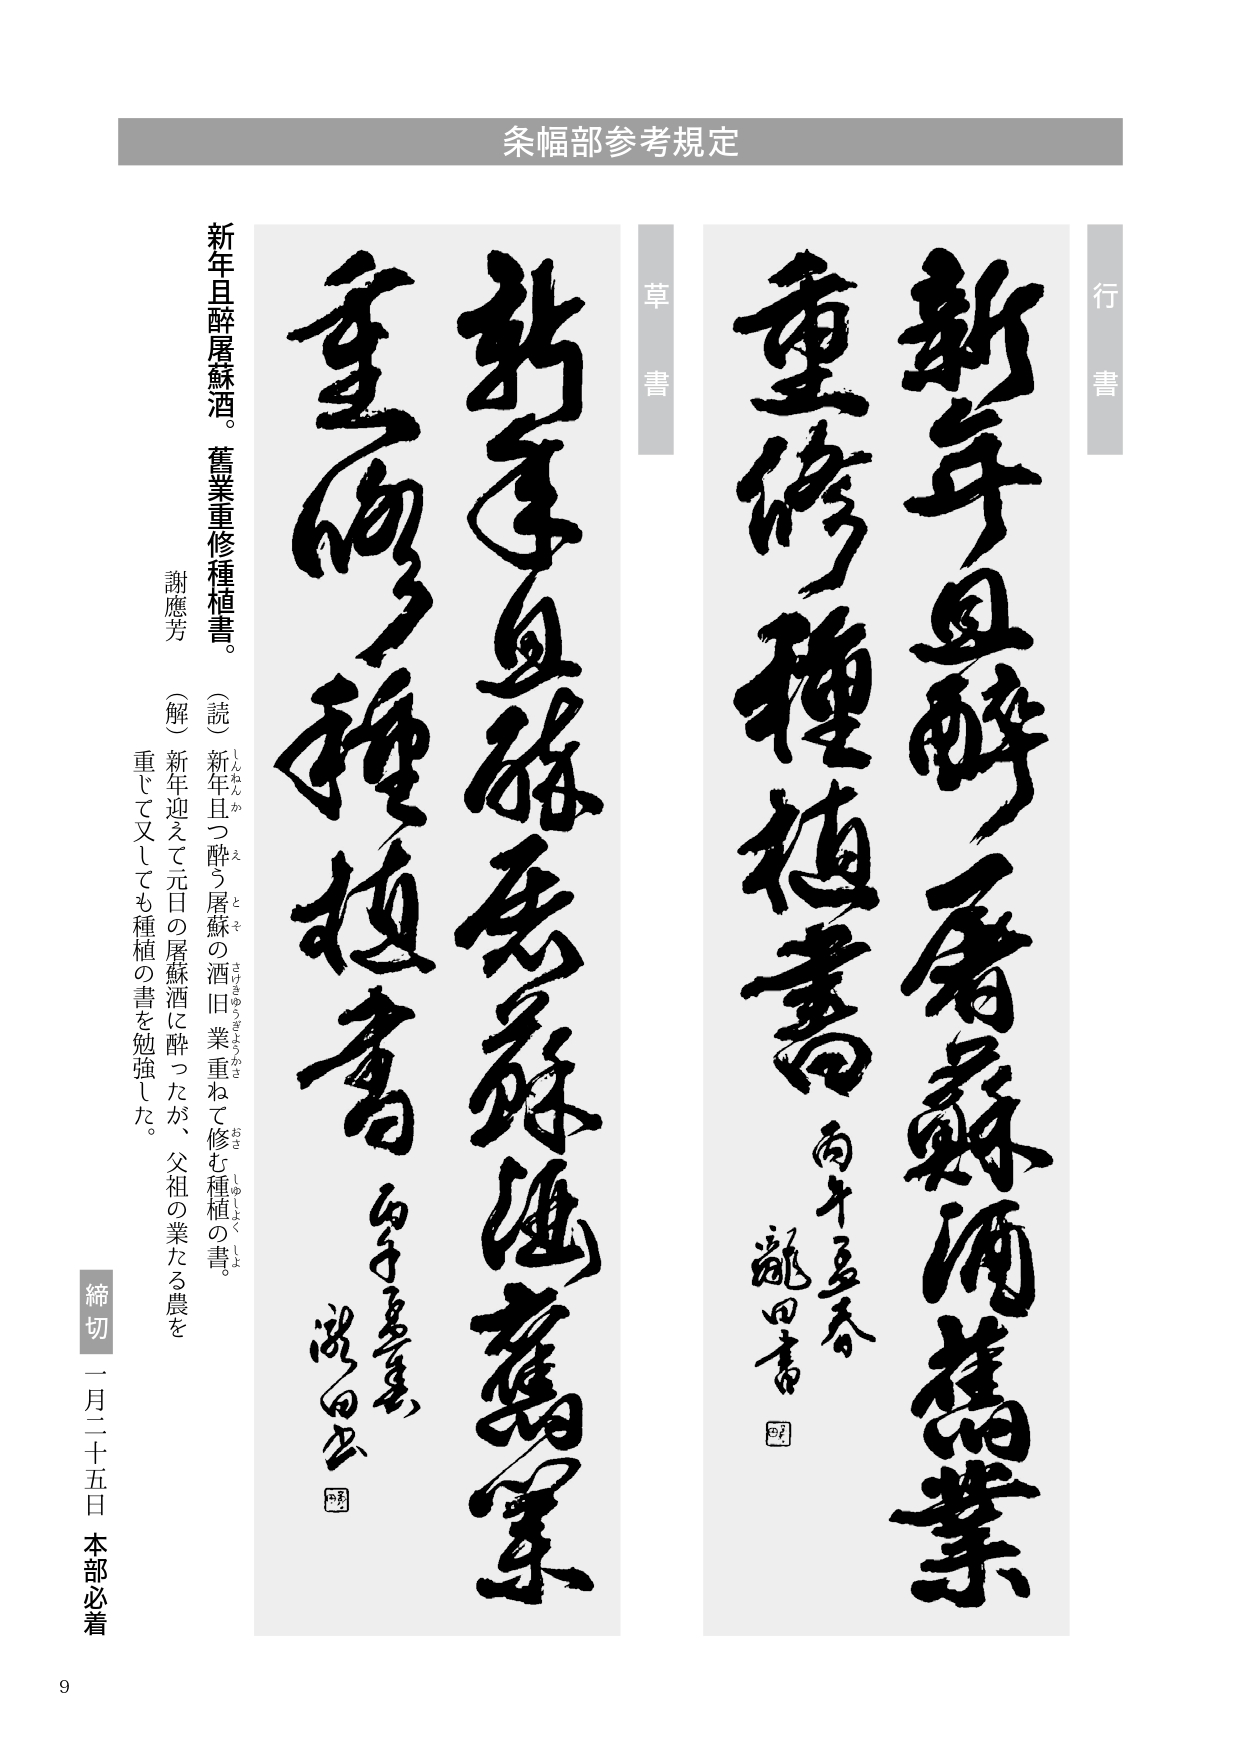 条幅部参考規定
行書
新年且醉屠蘇酒舊業
重修種植書
丙午孟春
龍田書
草書
新年且醉屠蘇酒舊業
重修種植書
丙午孟春
瀧田書
新年且醉屠蘇酒。舊業重修種植書。
謝應芳
（読）新年且つ酔う屠蘇の酒旧業重ねて修む種植の書。
しんねんか え とそ さけきゅうぎょうかさ おさ しゅしょく しょ
（解）新年迎えて元日の屠蘇酒に酔ったが、父祖の業たる農を
重じて又しても種植の書を勉強した。
締切 一月二十五日 本部必着
9